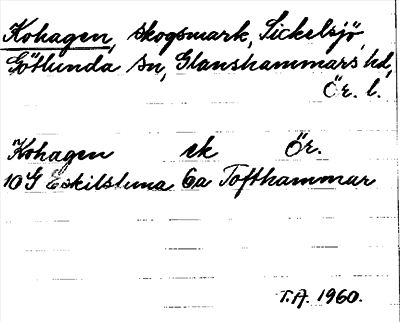 Kohagen, skogsmark, Sickelsjö,
Götlunda sn, Glanshammars hd,
Ör. l.
Kohagen ek Ör.
10G Eskilstuna 6a Tofthammar
T.A. 1960.